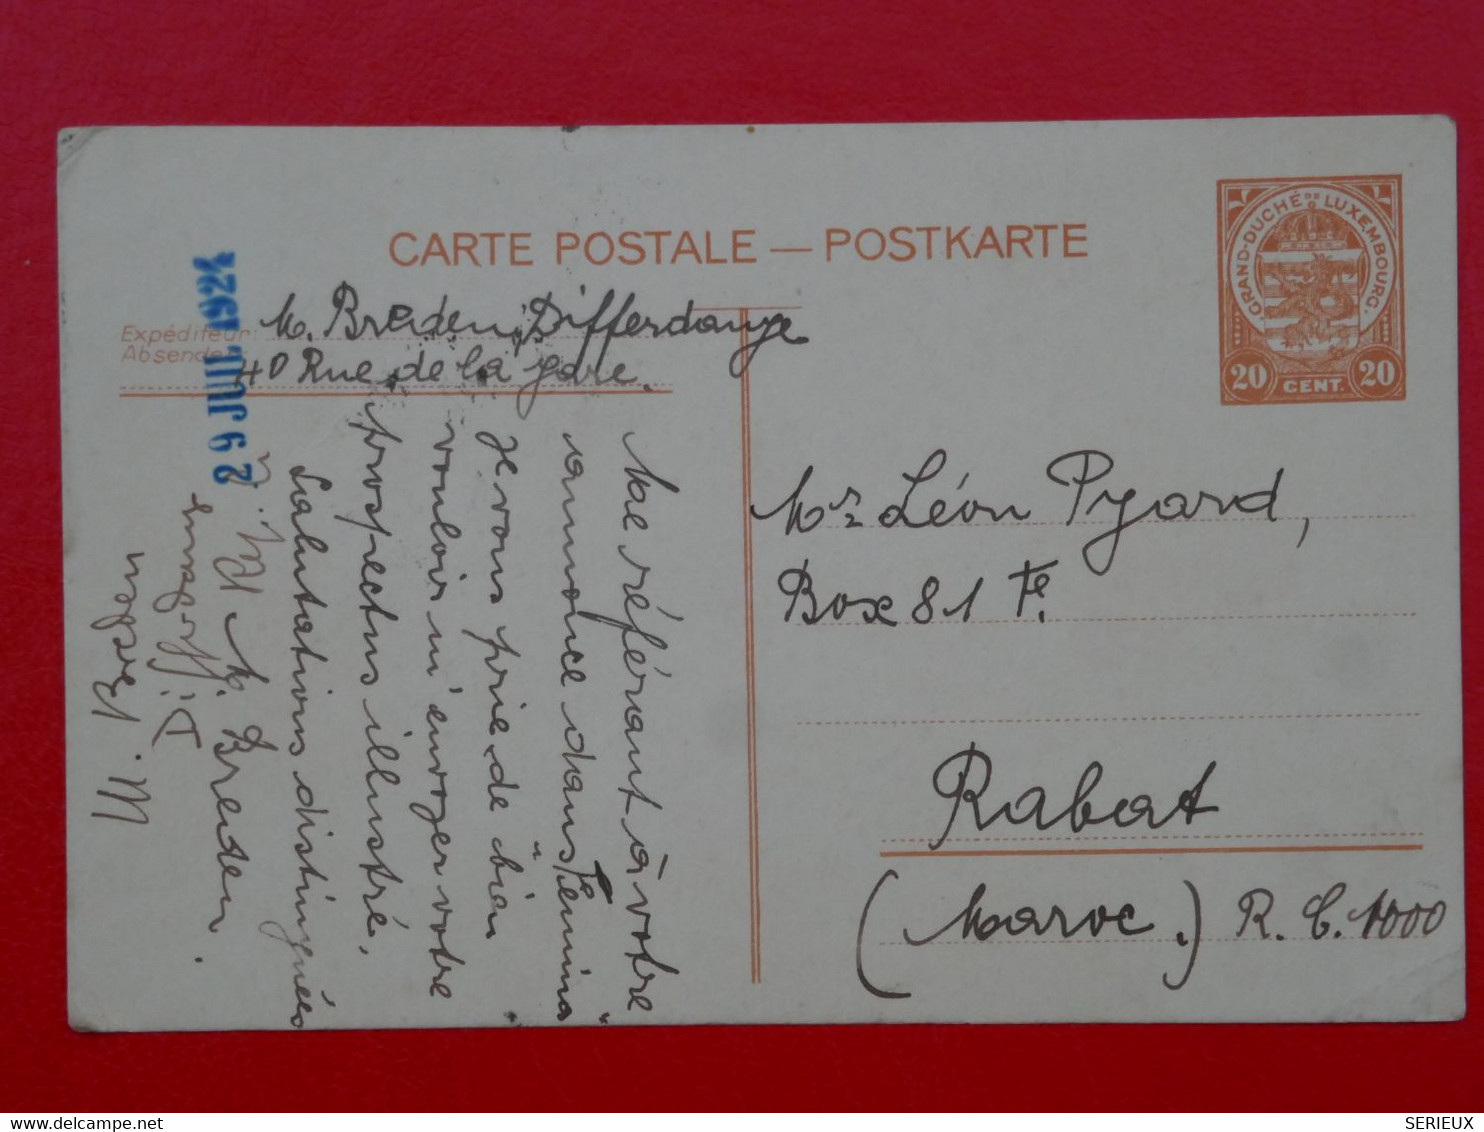 CARTE POSTALE — POSTKARTE
GRAND-DUCHÉ DE LUXEMBOURG.
20 CENT. 20
Expéditeur: M. Breden, Differdange
Absender: 40 Rue de la gare.
29 JUIL 1924
Me référant à votre
annonce dans "Femina"
je vous prie de bien
vouloir m'envoyer votre
prospectus illustré.
Salutations distinguées
M. Breden.
Mr Léon Pyard,
Box 81 Fe.
Rabat
(Maroc.) R. C. 1000
SERIEUX